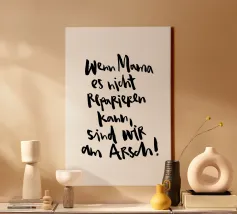 Wenn Mama
es nicht
reparieren
kann,
sind wir
am Arsch!